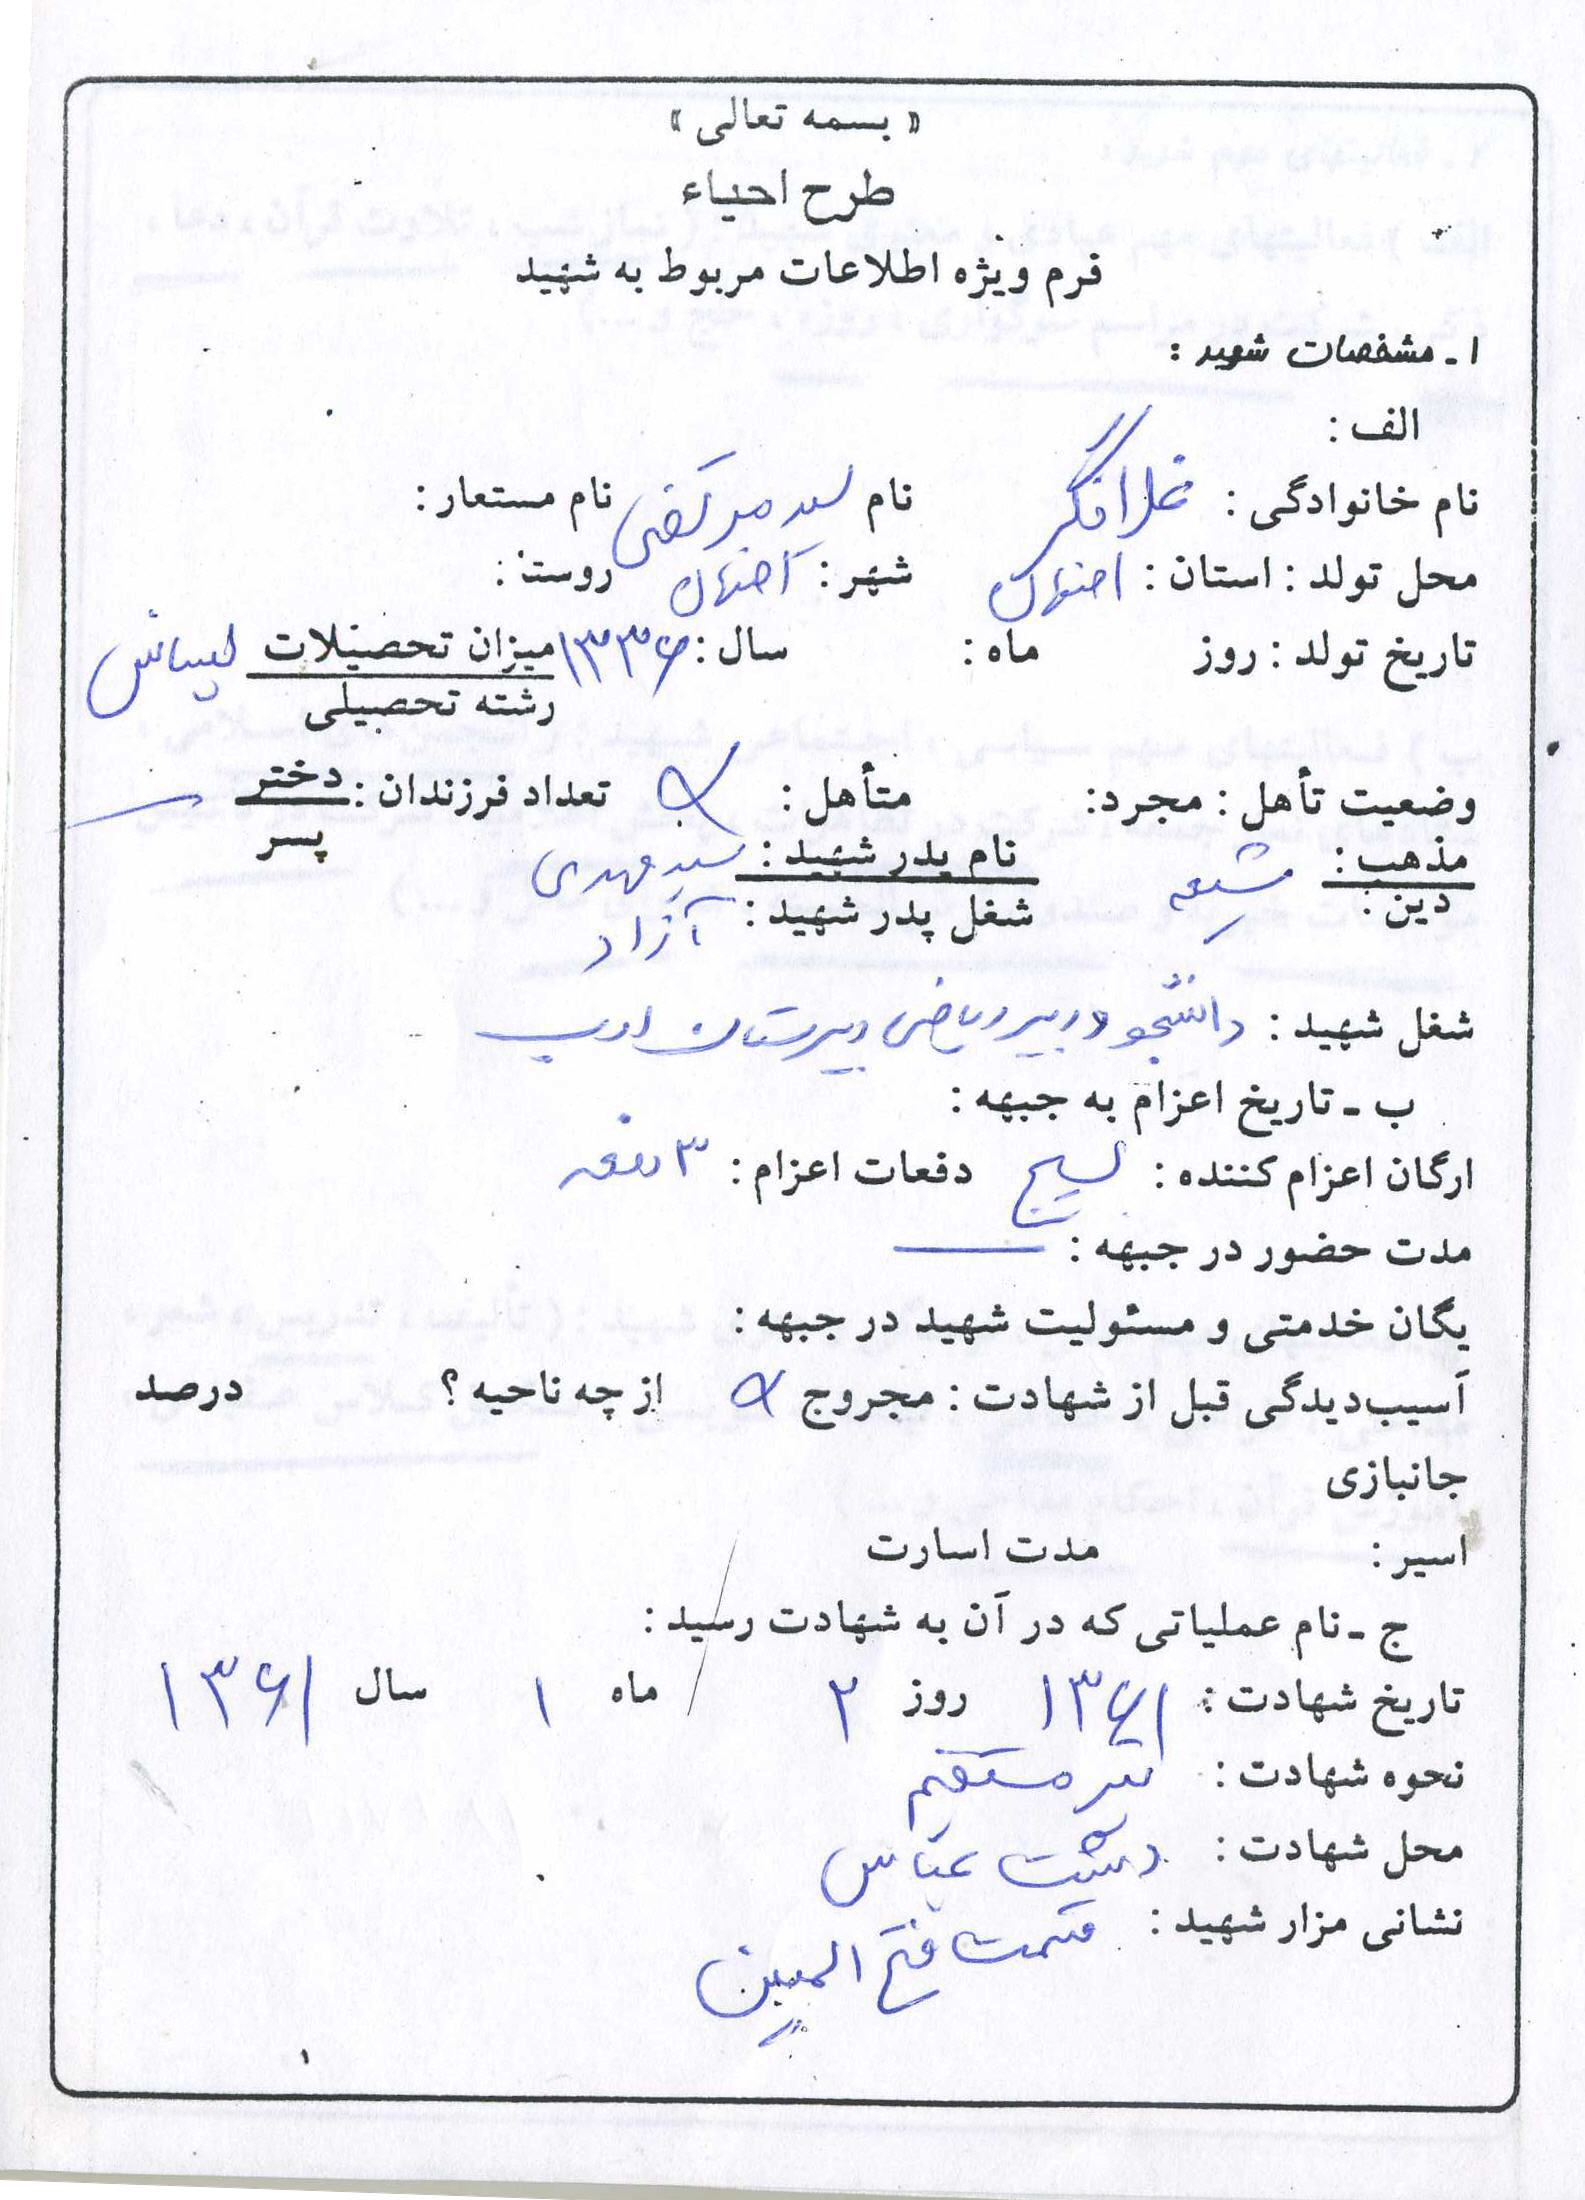 « بسمه تعالی »
طرح احیاء
فرم ویژه اطلاعات مربوط به شهید
۱ ـ مشخصات شهید :
الف :
نام خانوادگی : نام سید مرتضی نام مستعار :
محل تولد : استان : اصفهان شهر : اصفهان روستا :
تاریخ تولد : روز ماه : سال : ۱۳۳۶ میزان تحصیلات لیسانس
رشته تحصیلی
وضعیت تأهل : مجرد : متأهل : تعداد فرزندان : دختر
پسر
مذهب : شیعه نام پدر شهید : سید مهدی
دین : شغل پدر شهید : آزاد
شغل شهید : دانشجو و دبیر ریاضی دبیرستان ادب
ب ـ تاریخ اعزام به جبهه :
ارگان اعزام کننده : بسیج دفعات اعزام : ۳ دفعه
مدت حضور در جبهه : —
یگان خدمتی و مسئولیت شهید در جبهه :
آسیب‌دیدگی قبل از شهادت : مجروح از چه ناحیه ؟ درصد
جانبازی
اسیر : مدت اسارت
ج ـ نام عملیاتی که در آن به شهادت رسید :
تاریخ شهادت : ۱۳۶۱ روز ۲ ماه ۱ سال ۱۳۶۱
نحوه شهادت : تیر مستقیم
محل شهادت : دشت عباس
نشانی مزار شهید : قسمت فتح المبین
۱